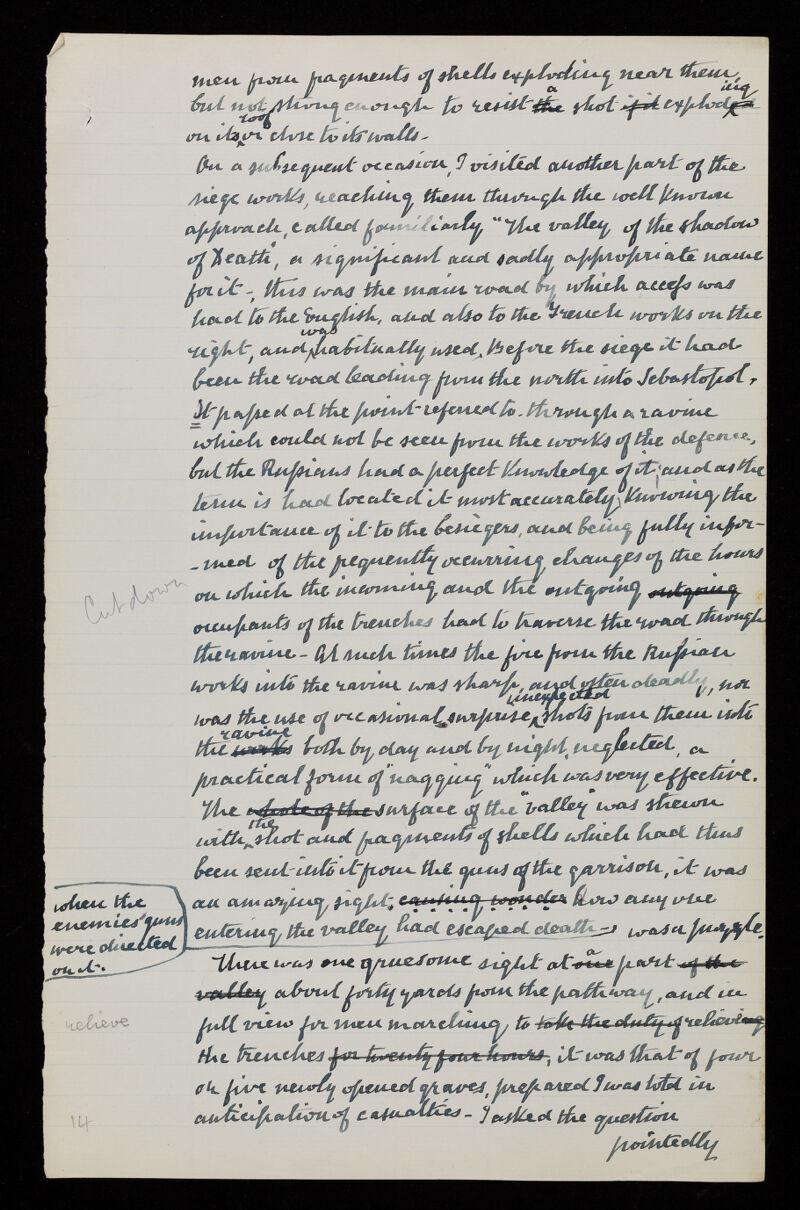 men from fragments of shells exploding near them,
but not strong enough to resist the a shot if it exploden ing
on its roof or close to its walls-
On a subsequent occasion, I visited another part of the
siege works, reaching them through the well known
approach, called familiarly "The valley of the shadow
of Death", a significant and sadly appropriate name
for it-, this was the main road by which access was
had to the English, and also to the French works on the
right, and was habitually used. Before the siege it had
been the road leading from the north into Sebastopol.
It passed at the point referred to through a ravine
which could not be seen from the works of the defence,
but the Russians had a perfect knowledge of it, and as the
term is had located it most accurately, knowing the
importance of it to the besiegers, and being fully infor-
-med of the frequently occurring changes of the hours
Cut down
on which the incoming and the outgoing outgoing
occupants of the trenches had to traverse the road through
the ravine - At such times the fire from the Russian
works into the ravine was sharp, and often deadly, nor
was the use of occasional surprise, unexpected shots from them into
the works ravine both by day and by night, neglected, a
practical form of "nagging" which was very effective.
The whole of the surface of the "valley" was strewn
with the shot and fragments of shells which had thus
been sent into it from the guns of the garrison, it was
an amazing sight, causing wonder how any one
entering the valley had escaped death- was a puzzle.
when the
enemies' guns
were directed
on it.
There was one gruesome sight at one a part of the
valley about forty yards from the pathway, and in
full view for men marching to take the duty of relieving
relieve
the trenches for twenty four hours, it was that of four
or five newly opened graves, prepared I was told in
anticipation of casualties - I asked the question
14
pointedly